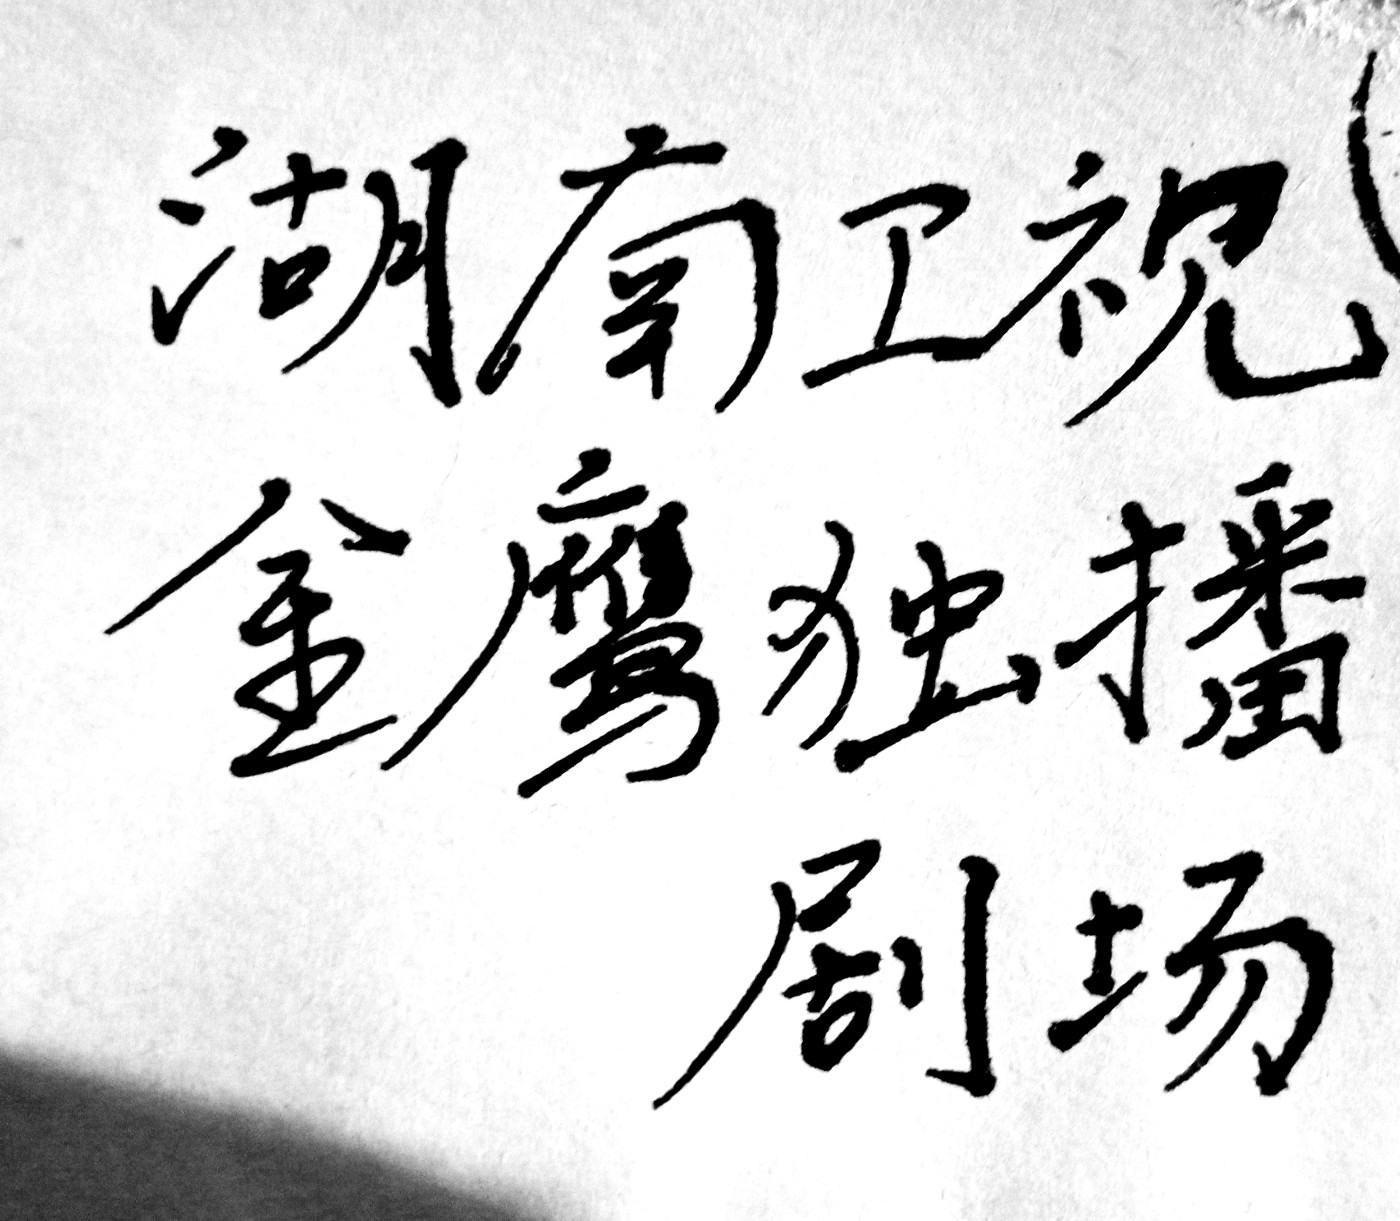 湖南卫视
金鹰独播
剧场